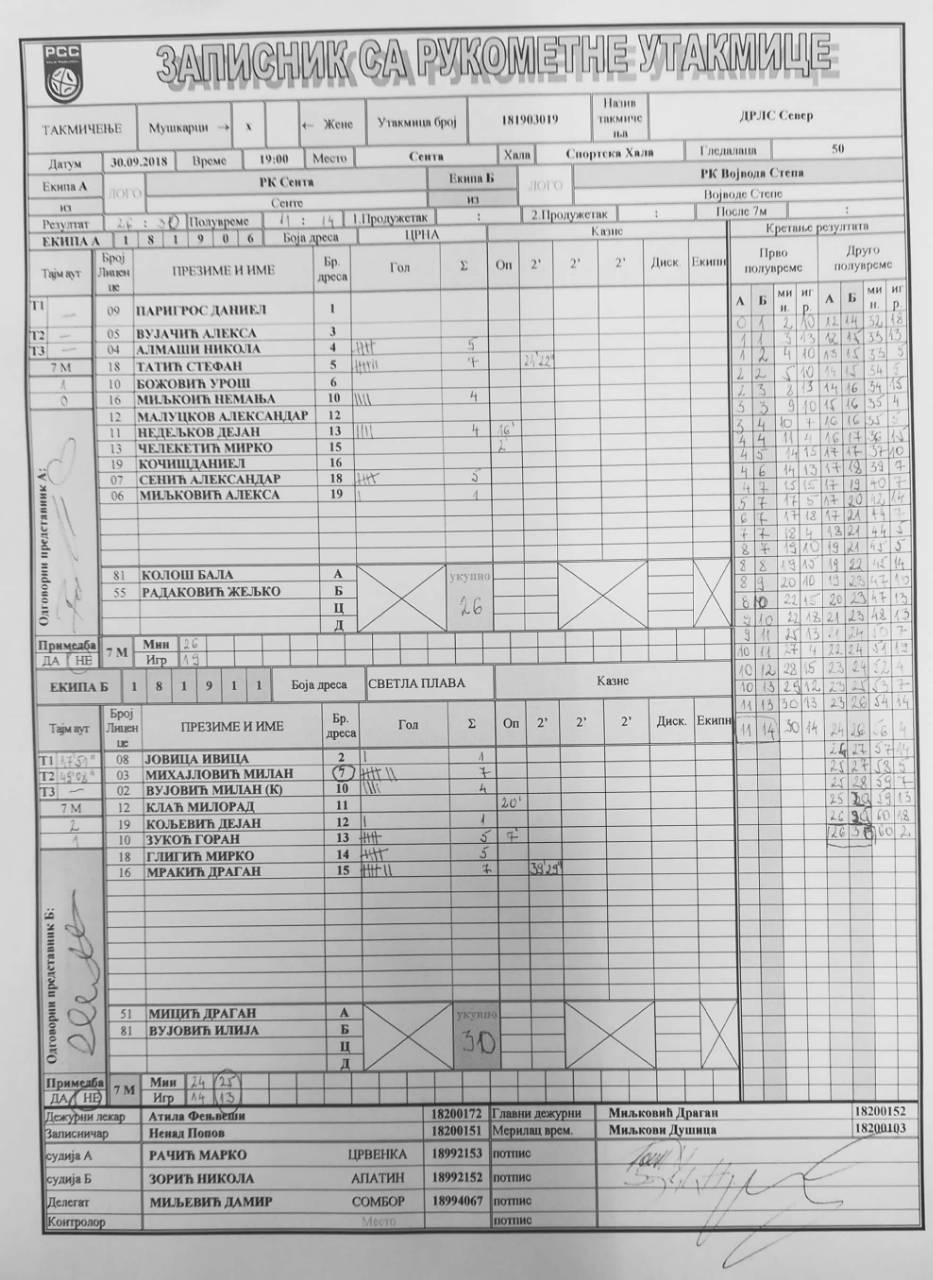 РСС
ЗАПИСНИК СА РУКОМЕТНЕ УТАКМИЦЕ
ТАКМИЧЕЊЕ Мушкарци → x ← Жене Утакмица број 181903019 Назив такмиче ња ДРЛС Север
Датум 30.09.2018 Време 19:00 Место Сента Хала Спортска Хала Гледалаца 50
Екипа А ЛОГО РК Сента Екипа Б ЛОГО РК Војвода Степа
из Сенте из Војводе Степе
Резултат 26 : 30 Полувреме 11 : 14 1.Продужетак : 2.Продужетак : После 7м :
ЕКИПА А 1 8 1 9 0 6 Боја дреса ЦРНА Казне Кретање резултата
Тајм аут Број Лиценце ПРЕЗИМЕ И ИМЕ Бр. дреса Гол Σ Оп 2' 2' 2' Диск. Екипн
Прво полувреме Друго полувреме
А Б ми н. иг р. А Б ми н. иг р.
Т1 — 09 ПАРИГРОС ДАНИЕЛ 1
Т2 — 05 ВУЈАЧИЋ АЛЕКСА 3
Т3 — 04 АЛМАШИ НИКОЛА 4 5
7 М 18 ТАТИЋ СТЕФАН 5 7
1 10 БОЖОВИЋ УРОШ 6
0 16 МИЉКОИЋ НЕМАЊА 10 4
12 МАЛУЦКОВ АЛЕКСАНДАР 12
11 НЕДЕЉКОВ ДЕЈАН 13 4 16'
13 ЧЕЛЕКЕТИЋ МИРКО 15 2'
19 КОЧИШДАНИЕЛ 16
07 СЕНИЋ АЛЕКСАНДАР 18 5
06 МИЉКОВИЋ АЛЕКСА 19 1
Одговорни представник А:
81 КОЛОШ БАЛА А укупно
55 РАДАКОВИЋ ЖЕЉКО Б 26
Ц
Д
Примедба 7 М Мин 26
ДА НЕ Игр 19
ЕКИПА Б 1 8 1 9 1 1 Боја дреса СВЕТЛА ПЛАВА Казне
Тајм аут Број Лиценце ПРЕЗИМЕ И ИМЕ Бр. дреса Гол Σ Оп 2' 2' 2' Диск. Екипн
Т1 08 ЈОВИЦА ИВИЦА 2 1
Т2 03 МИХАЈЛОВИЋ МИЛАН 7 7
Т3 — 02 ВУЈОВИЋ МИЛАН (К) 10 4
7 М 12 КЛАЋ МИЛОРАД 11 20'
2 19 КОЉЕВИЋ ДЕЈАН 12 1
1 10 ЗУКОЋ ГОРАН 13 5 7'
18 ГЛИГИЋ МИРКО 14 5
16 МРАКИЋ ДРАГАН 15 7 39'29"
Одговорни представник Б:
51 МИЦИЋ ДРАГАН А укупно
81 ВУЈОВИЋ ИЛИЈА Б 30
Ц
Д
Примедба 7 М Мин 24 25
ДА НЕ Игр 14 13
0 1 2 10 12 14 32 18
1 1 3 13 12 15 33 13
1 2 4 10 13 15 33 5
2 2 5 10 14 15 34 5
2 3 8 13 14 16 34 15
3 3 9 10 15 16 35 4
3 4 10 7 16 16 35
4 4 11 4 16 17 36 15
4 5 14 15 17 17 37 10
4 6 14 13 17 18 39 7
4 7 15 15 17 19 40 7
5 7 17 5 17 20 42 14
6 7 17 18 17 21 44 7
7 7 18 4 18 21 44 5
8 7 19 10 19 21 45 5
8 8 19 15 19 22 45 14
8 9 20 10 19 23 47 10
8 10 22 15 20 23 47 13
9 10 22 18 21 23 48 13
9 11 25 13 21 24 50 7
10 11 27 4 22 24 51 19
10 12 28 15 23 24 52 4
10 13 29 12 23 25 53 7
11 13 30 13 23 26 54 14
11 14 30 14 24 26 56 4
24 27 57 14
25 27 58 5
25 28 59 7
25 29 59 13
26 29 60 18
26 30 60 2
Дежурни лекар Атила Фењвеши 18200172 Главни дежурни Миљковић Драган 18200152
Записничар Ненад Попов 18200151 Мерилац врем. Миљкови Душица 18200103
судија А РАЧИЋ МАРКО ЦРВЕНКА 18992153 потпис
судија Б ЗОРИЋ НИКОЛА АПАТИН 18992152 потпис
Делегат МИЉЕВИЋ ДАМИР СОМБОР 18994067 потпис
Контролор Место потпис